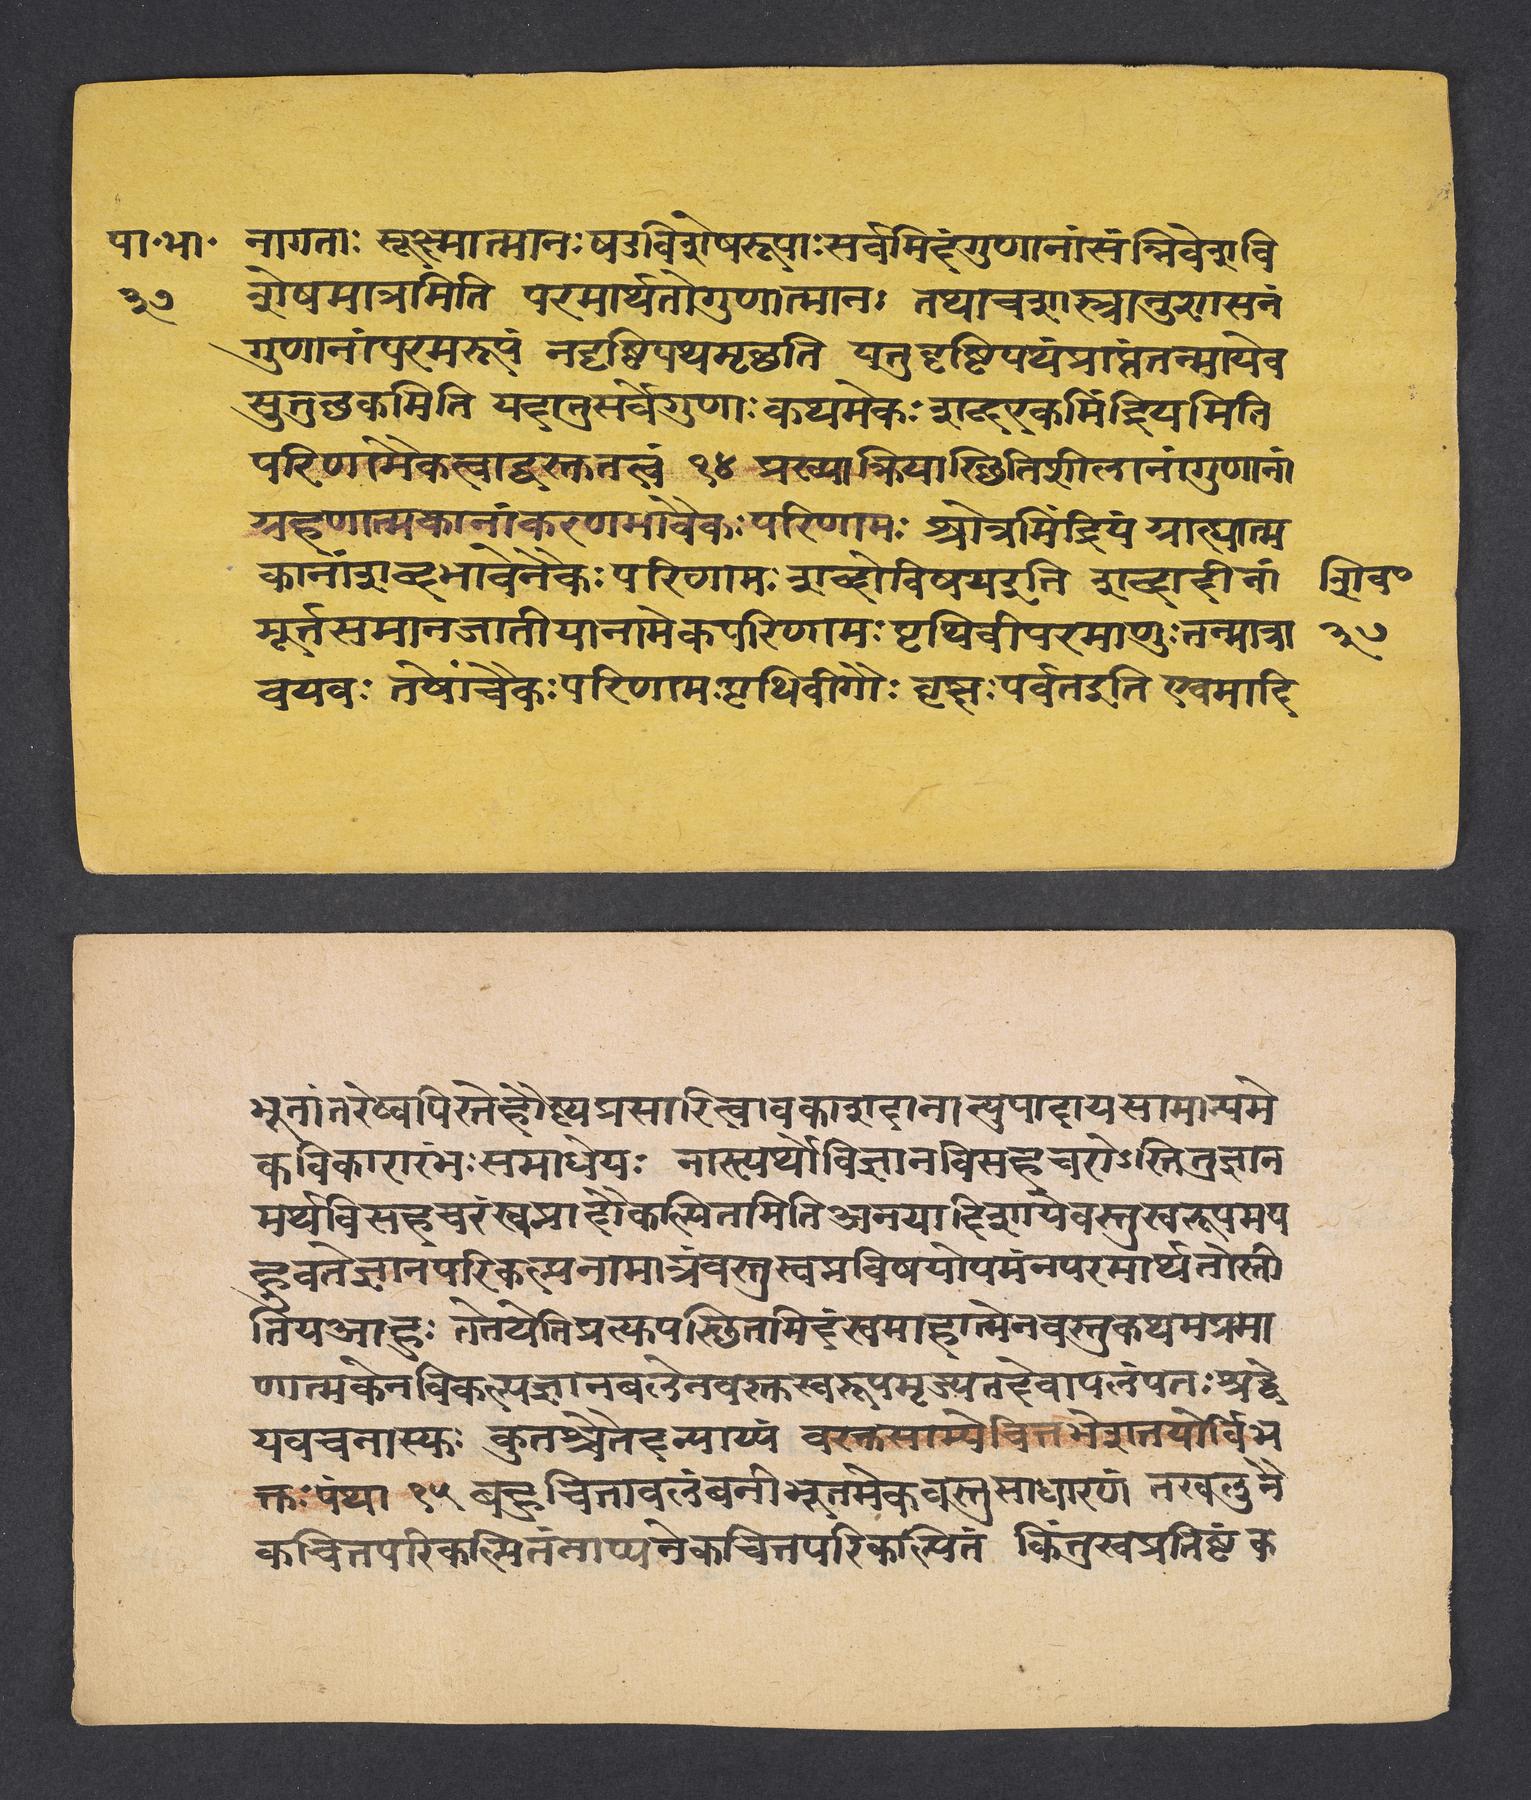 पा॰भा॰ नागताः सूक्ष्मात्मानः षडविशेषरूपाः सर्वमिदंगुणानांसंन्निवेशवि
३७ शेषमात्रमिति परमार्थतोगुणात्मानः तथाचशास्त्रानुशासनं
गुणानांपरमरूपं नदृष्टिपथमृछति यत्तुदृष्टिपथंप्राप्तंतन्मायेव
सुतुछकमिति यदातुसर्वेगुणाः कथमेकः शब्दएकमिंद्रियमिति
परिणामैकत्वाद्वस्तुतत्वं १४ प्रख्याक्रियास्थितिशीलानांगुणानां
ग्रहणात्मकानांकरणभावेनैकः परिणामः श्रोत्रमिंद्रियं ग्राह्यात्म
कानांशब्दभावेनैकः परिणामः शब्दोविषयइति शब्दादीनां शिव॰
मूर्त्तसमानजातीयानामेकपरिणामः पृथिवीपरमाणुः तन्मात्रा ३७
वयवः तेषांचैकः परिणामः पृथिवीगौः वृक्षः पर्वतइति एवमादि
भूतांतरेष्वपिस्नेहौष्ण्यप्रसारित्वावकाशदानान्युपादायसामान्यमे
कविकारारंभः समाधेयः नास्त्यर्थोविज्ञानविसहचरोऽस्तितुज्ञान
मर्थविसहचरंस्वप्नादौकल्पितमितिअनयादिशायेवस्तुस्वरूपमप
ह्नुवतेज्ञानपरिकल्पनामात्रंवस्तुस्वप्नविषयोपमंनपरमार्थतोस्ती
तियआहुः तेतथेतिप्रत्यपस्थितमिदंस्वमाहात्म्येनवस्तुकथमप्रमा
णात्मकेनविकल्पज्ञानबलेनवस्तुस्वरूपमृज्यतदेवापलंपतः श्रद्धे
यवचनास्यः कुतश्चैतदन्याय्यं वस्तुसाम्येचित्तभेदात्तयोर्विभ
क्तः पंथा १५ बहुचित्तावलंबनीभूतमेकवस्तुसाधारणं तखलुनै
कचित्तपरिकल्पितंनाप्यनेकचित्तपरिकल्पितं किंतुस्वप्रतिष्टं क